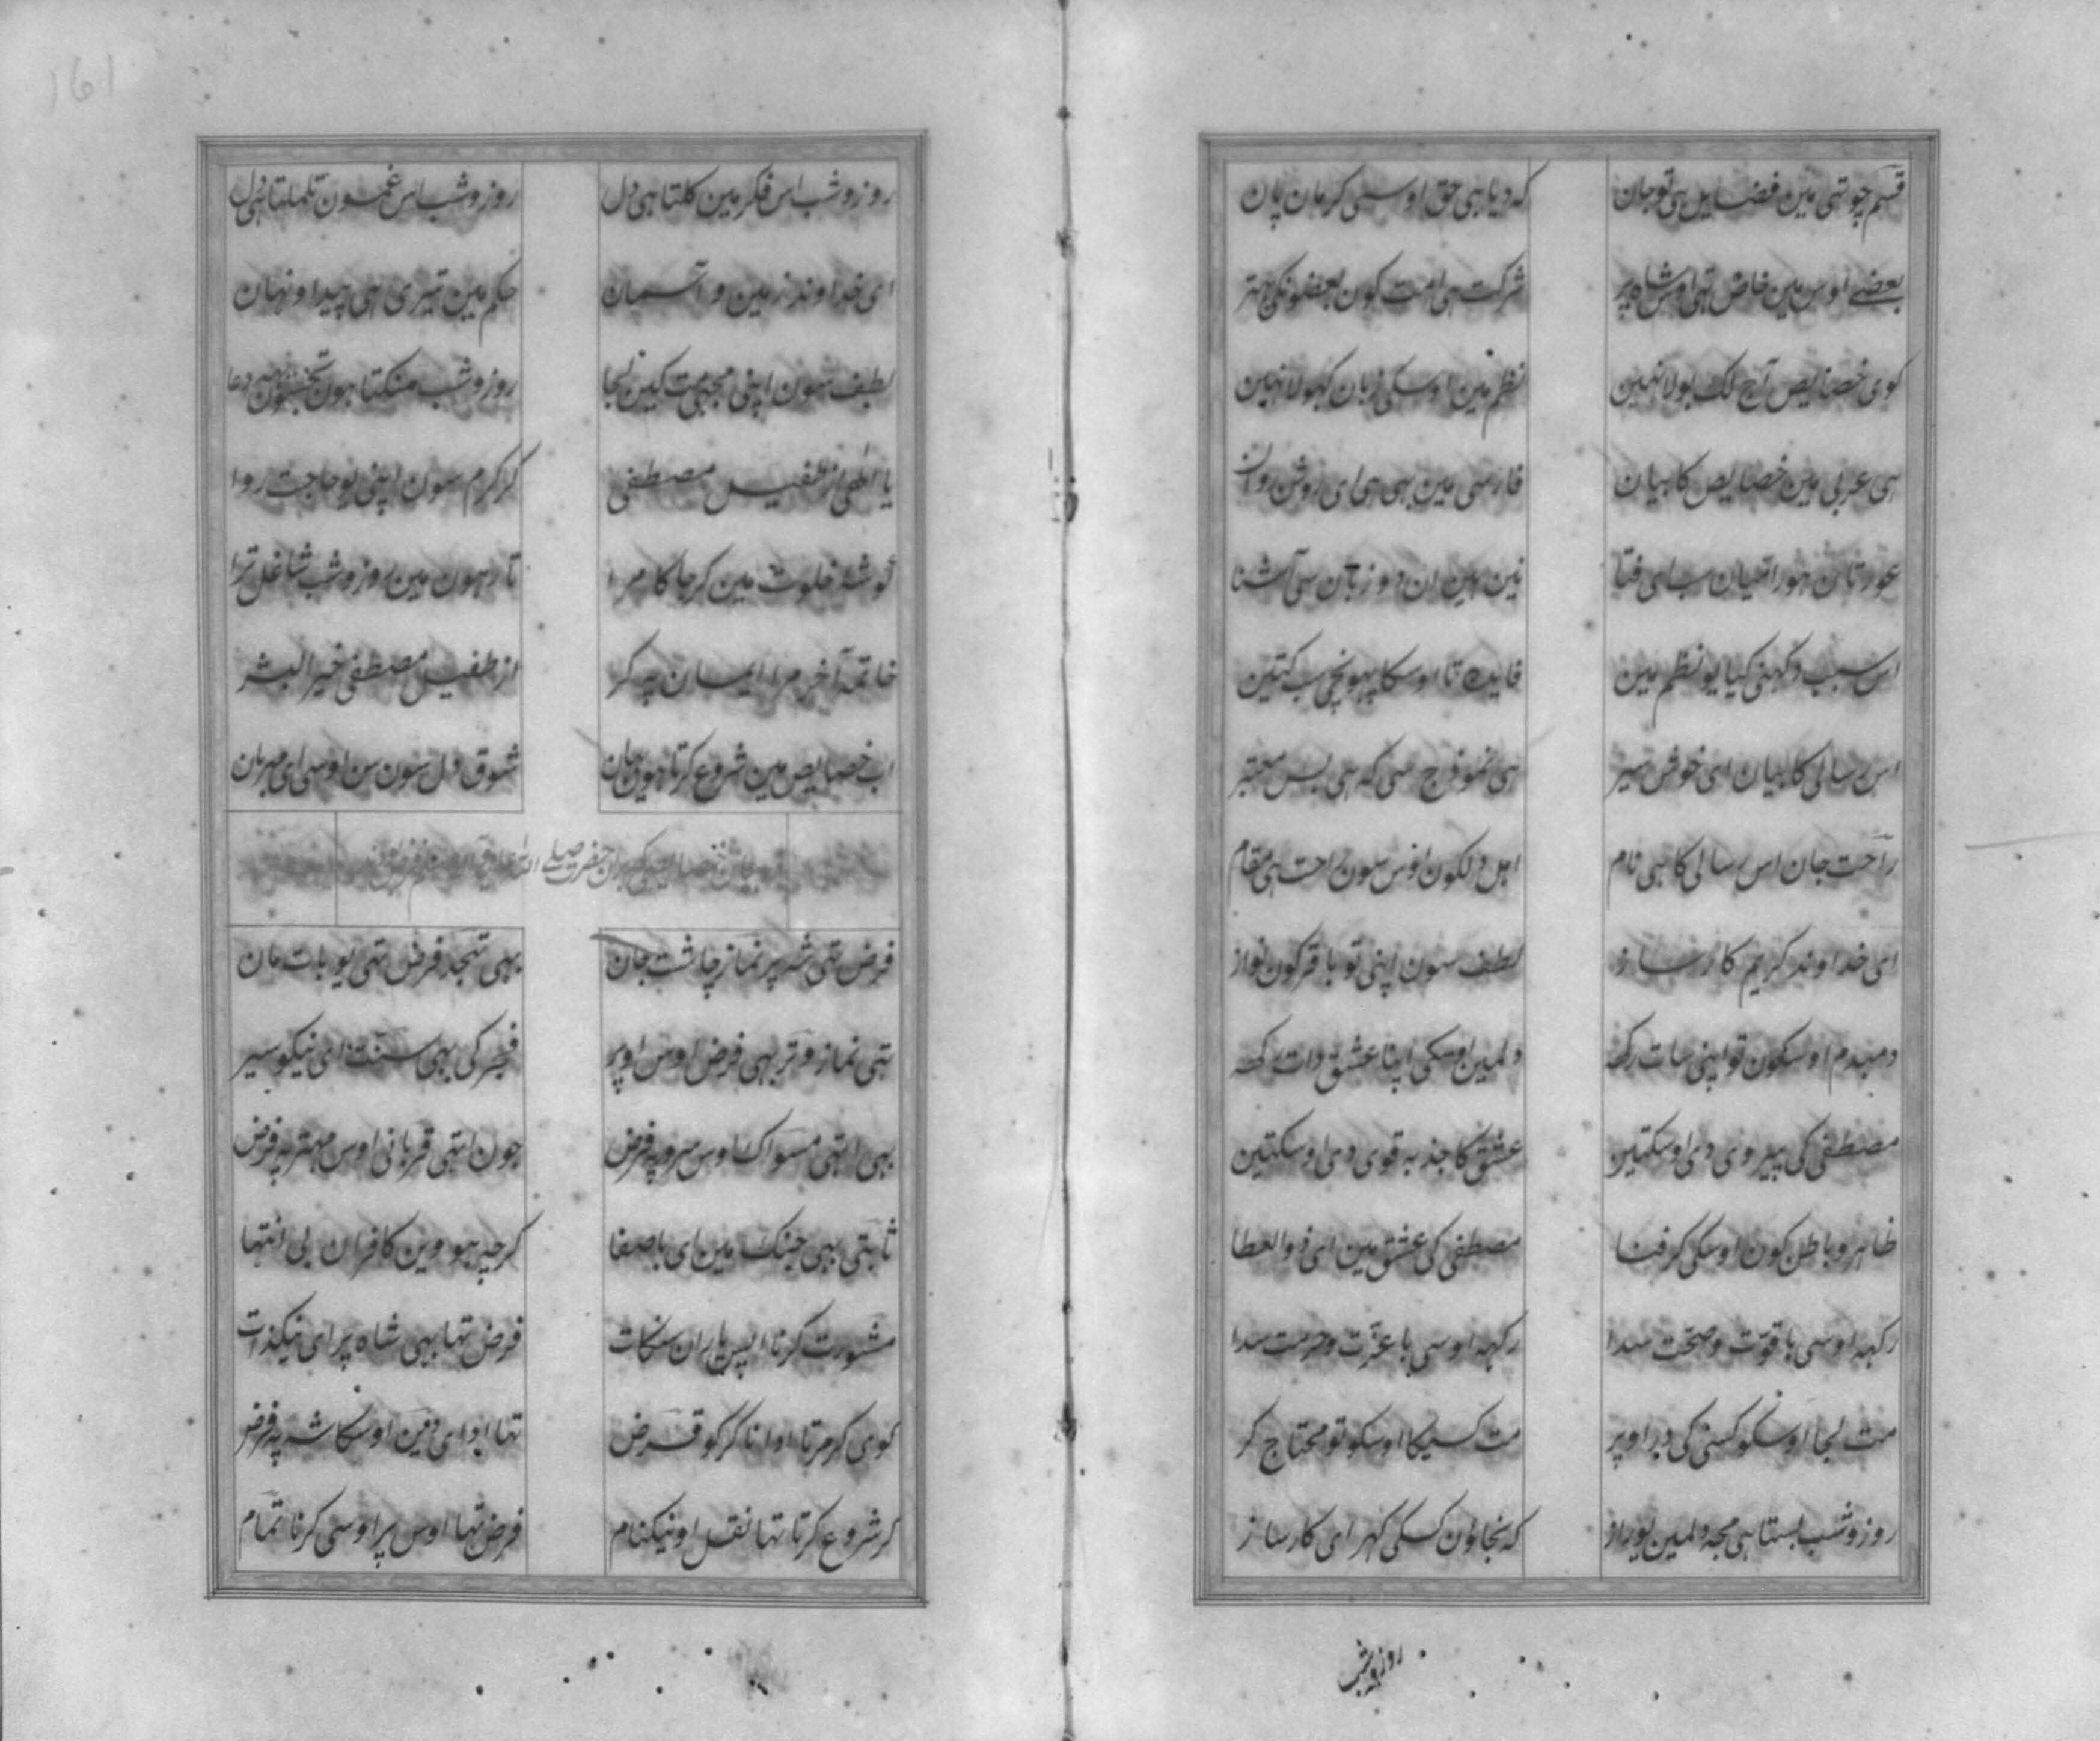 قسم چوتهی مین فضایل هی تو جان که دیا هی حق اوسی کر مان پان
بعضے اوس مین خاض تهی اوس شاه پر شرکت هی امت کون بعضونکی بهتر
کوی خصایص آج لک بولا نهین نظم مین اوسکی زبان کهولا نهین
هی عربی مین خصایص کا بیان فارسی مین بهی هی ای روشن روان
عورتان هور امیان سب ای فتا نین هین ان دو زبان سی آشنا
اس سبب دکهنی کیا یو نظم مین فایده تا اوسکا پهونچی سب کتین
اس رسالی کا بیان ای خوش سیر هی نموذج سی که هی بس معتبر
راحت جان اس رسالی کا هی نام اهل دلکون اوس سون راحت هی مقام
ای خداوند کریم کارساز لطف سون اپنی تو باقر کون نواز
دمبدم اوسکون تو اپنی سات رکه دلمین اوسکی اپنا عشق ذات رکهه
مصطفی کی پیروی دی اوسکتین عشق کا جذبه قوی دی اوسکتین
ظاهر و باطن کون اوسکی کر فنا مصطفی کی عشق مین ای ذو العطا
رکهه اوسی با قوّت و صحّت سدا رکهه اوسی با عزّت و حرمت سدا
مت لیجا اوسکو کسی کی در اوپر مت کسیکا اوسکو تو محتاج کر
روز و شب بستا هی مجه دلمین یو راز که نجاؤن کسکی گهر ای کارساز
روز و شب
روز و شب اس فکر مین کلتا هی دل روز و شب اس غم سون تلملتا هی دل
ای خداوند زمین و آسمان حکم مین تیری هی پیدا و نهان
لطف سون اپنی مجهی مت کین لیجا روز و شب منکتا هون تجسون یهی دعا
یا الهی از طفیل مصطفی کر کرم سون اپنی یو حاجت روا
گوشهٔ خلوت مین کر جاکا مرا تا رهون مین روز و شب شاغل ترا
خاتمه آخر مرا ایمان په کر از طفیل مصطفی خیر البشر
اب خصایص مین شروع کرتا هون جان شوق دل سون سن اوسی ای مهربان
فرض تهی شه پر نماز چاشت جان بهی تهجد فرض تهی یو بات مان
تهی نماز وتر بهی فرض اوس اوپر فجر کی بهی سنت ای نیکو سیر
بهی اتهی مسواک اوس سرور په فرض جون اتهی قربانی اوس مهتر په فرض
ثابتی بهی جنگ مین ای باصفا گرچه هووین کافران بی انتها
مشورت کرنا اپس یاران سنکات فرض تها بهی شاه پر ای نیکذات
کوی گر مرتا ادا نا کر کو قرض تها ادای دین اوسکا شه په فرض
کر شروع کرتا تها نفل او نیکنام فرض تها اوس پر اوسی کرنا تمام